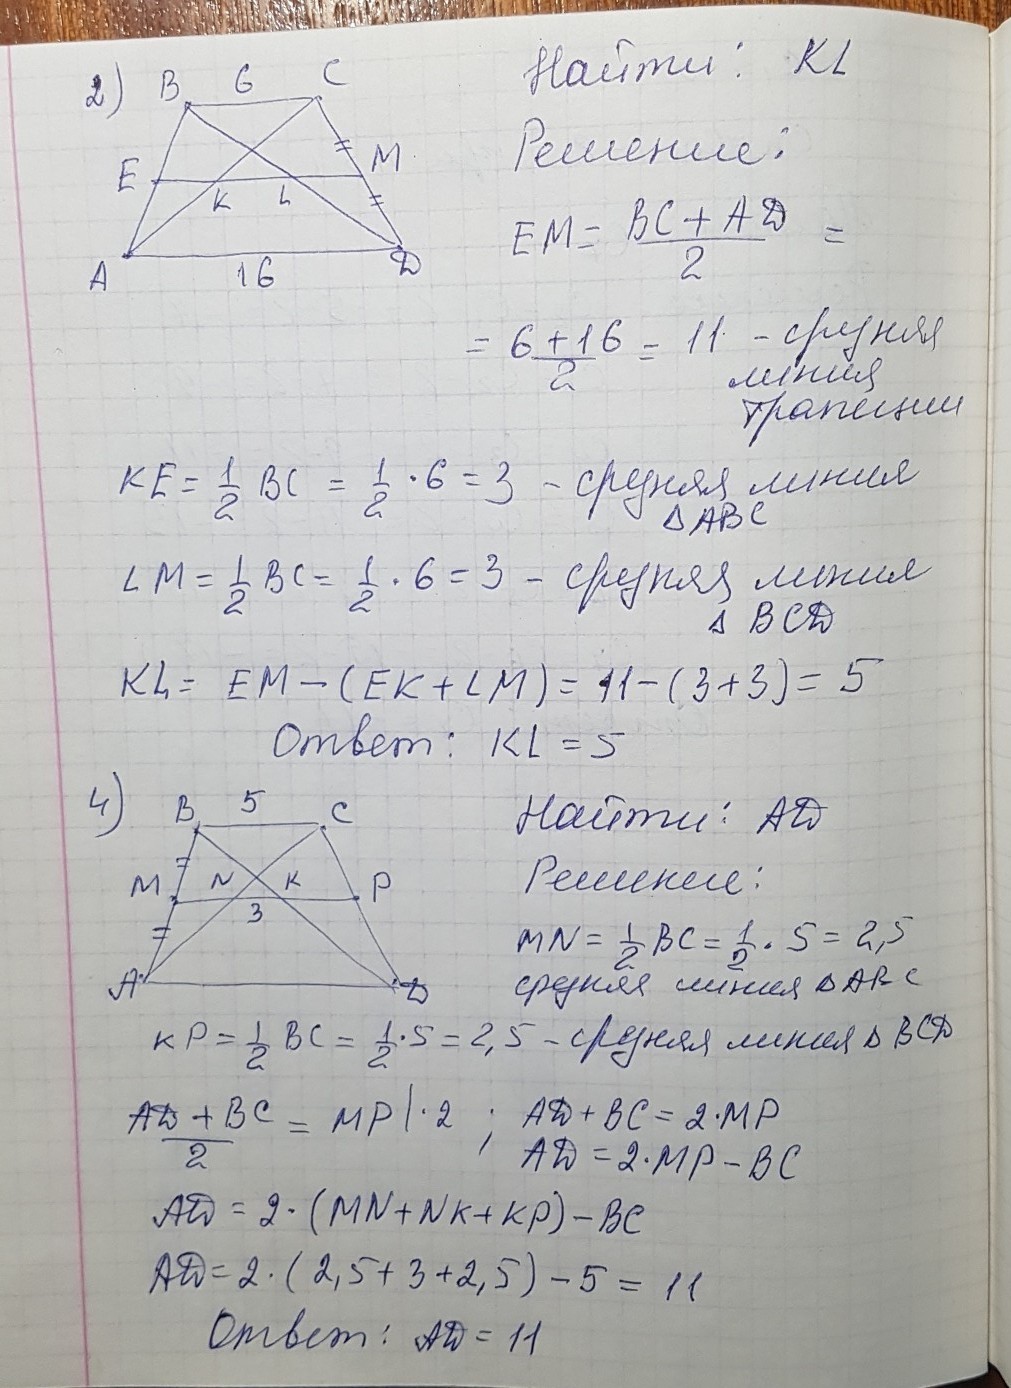 2) B 6 C
Найти: KL
E M
K L
A 16 D
Решение:
EM = (BC + AD)/2 =
= (6 + 16)/2 = 11 - средняя
линия
трапеции
KE = 1/2 BC = 1/2 · 6 = 3 - средняя линия
Δ ABC
LM = 1/2 BC = 1/2 · 6 = 3 - средняя линия
Δ BCD
KL = EM - (EK + LM) = 11 - (3+3) = 5
Ответ: KL = 5
4) B 5 C
Найти: AD
M N K P
3
A D
Решение:
MN = 1/2 BC = 1/2 · 5 = 2,5
средняя линия Δ ABC
KP = 1/2 BC = 1/2 · 5 = 2,5 - средняя линия Δ BCD
(AD + BC)/2 = MP | · 2 ; AD + BC = 2 · MP
AD = 2 · MP - BC
AD = 2 · (MN + NK + KP) - BC
AD = 2 · (2,5 + 3 + 2,5) - 5 = 11
Ответ: AD = 11